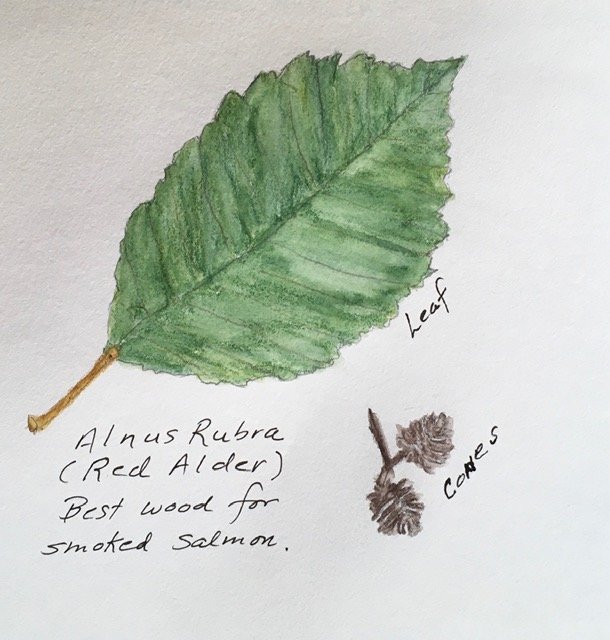 Leaf
Alnus Rubra
(Red Alder)
Best wood for
smoked salmon.
Cones